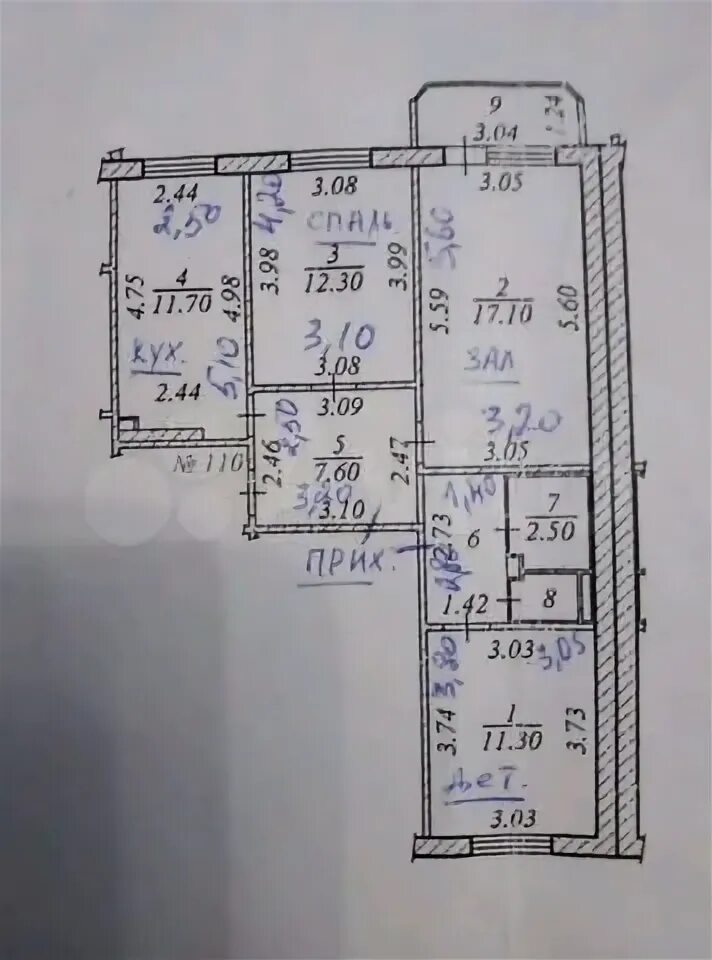 9
3.04
1.24
2.44
2,50
4.75
4
11.70
4.98
КУХ.
5,10
2.44
4,20
3.08
СПАЛЬ.
3.98
3
12.30
3.99
3,10
3.08
3.05
5,60
5.59
2
17.10
5.60
ЗАЛ
3,20
3.05
№ 110
3.09
2,50
2.46
5
7.60
2.47
3,20
3.10
ПРИХ.
1,40
2.73
6
1.42
7
2.50
8
3.03
3,05
3,80
3.74
1
11.30
3.73
ДЕТ.
3.03